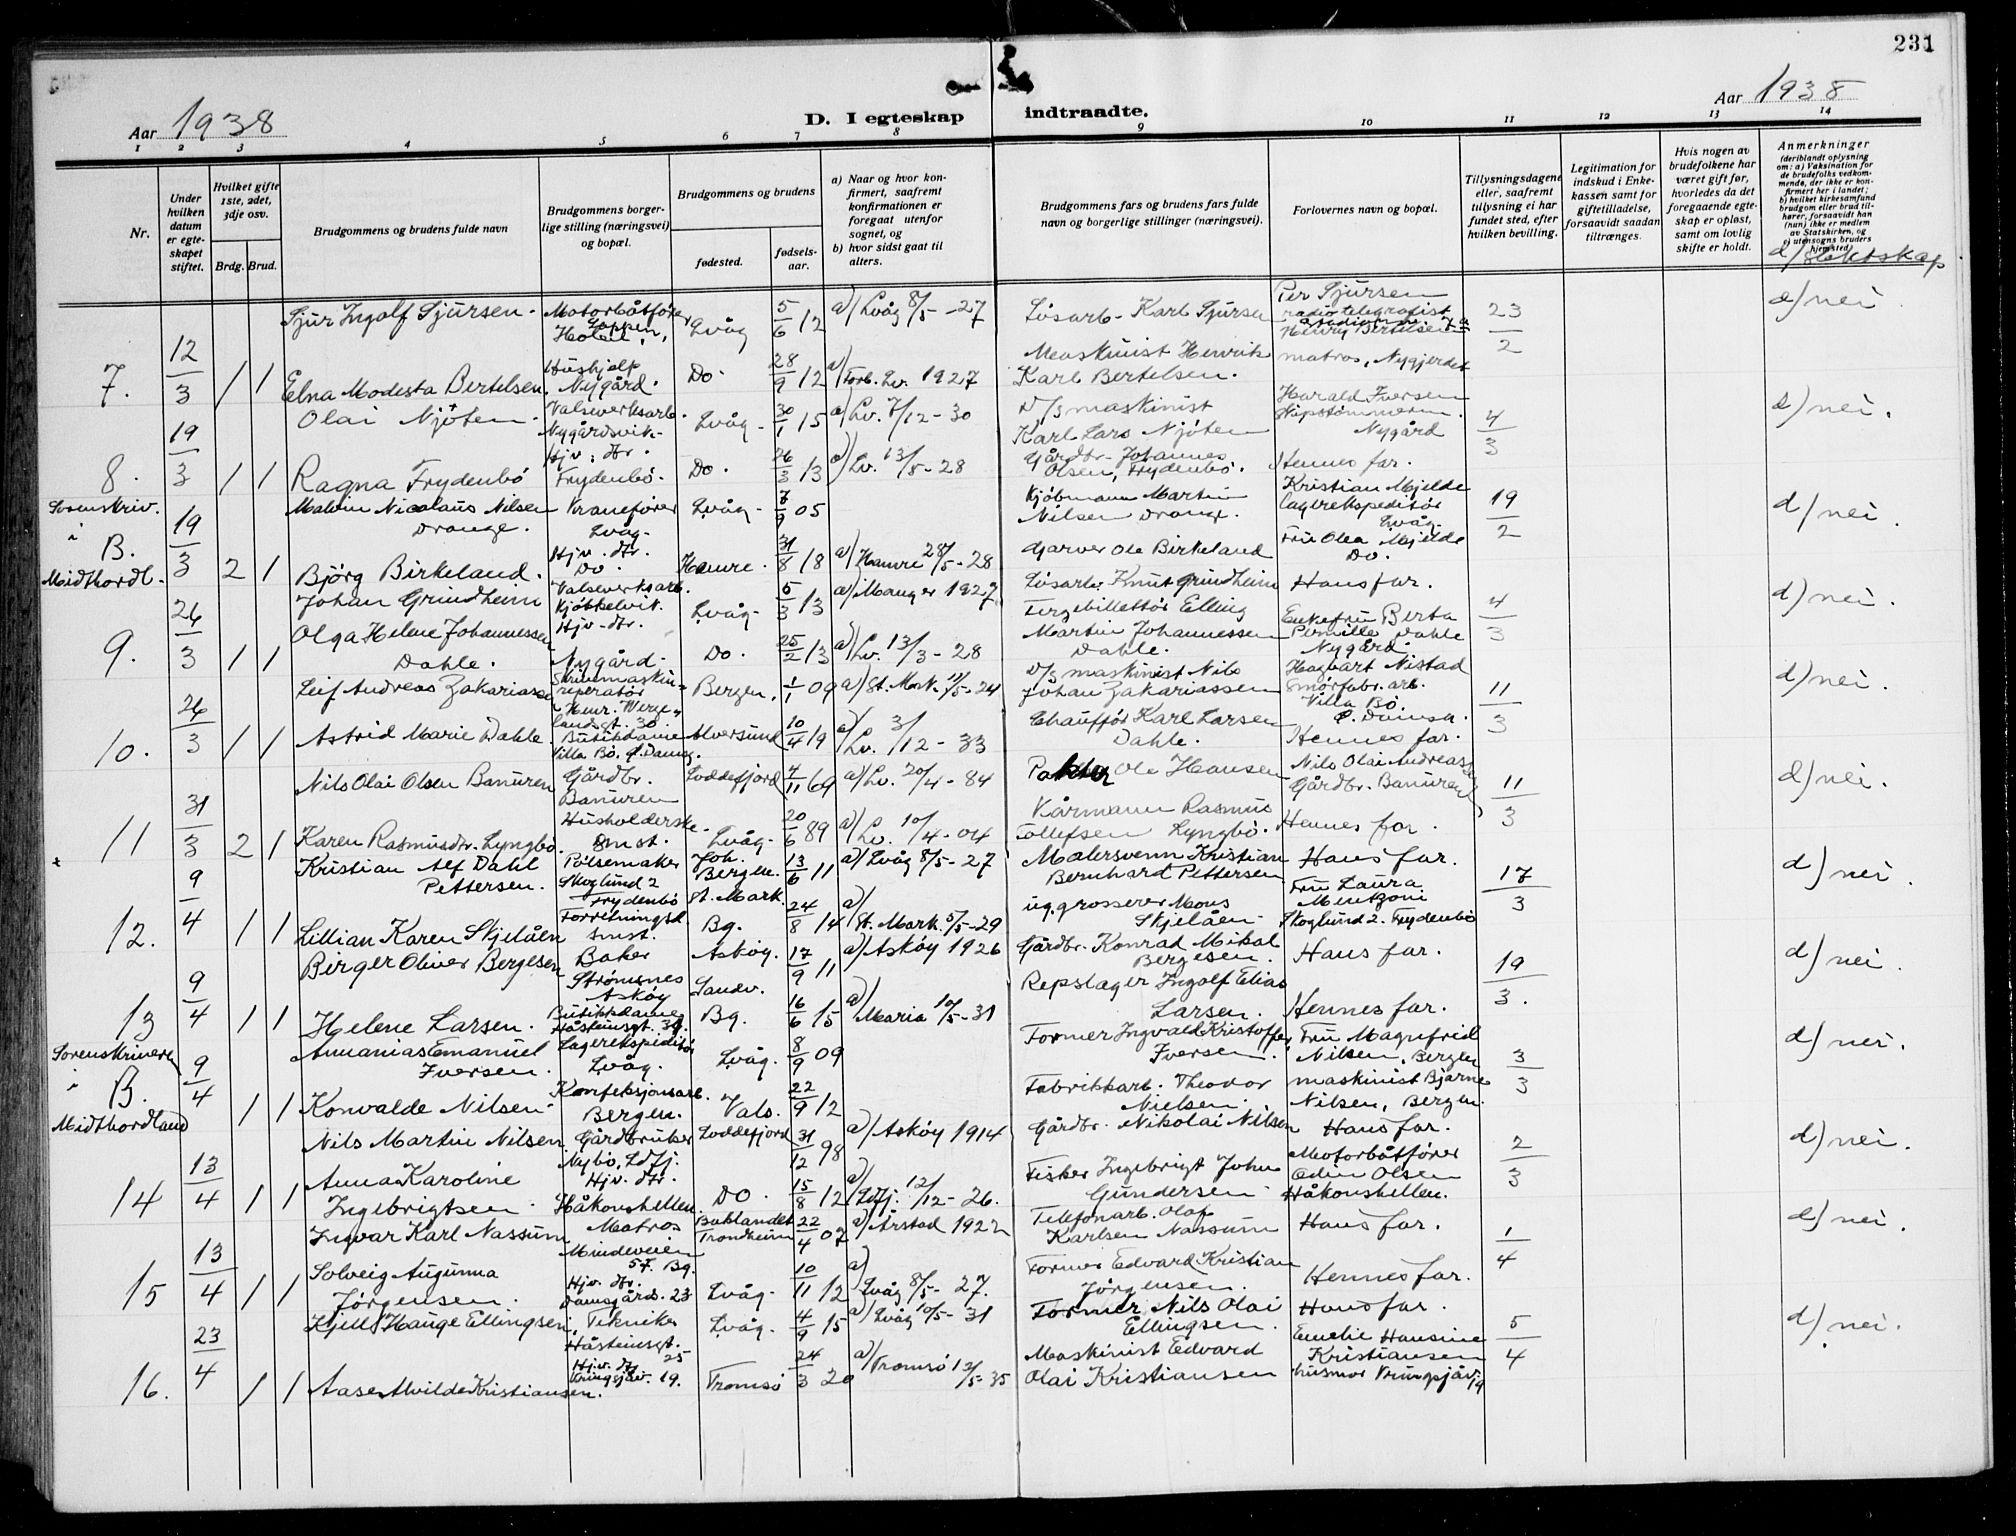 231
Aar 1938
D. I egteskap indtraadte.
Aar 1938
1 2 3 4 5 6 7 8 9 10 11 12 13 14
Nr.
Under hvilken datum er egteskapet stiftet.
Hvilket gifte 1ste, 2det, 3dje osv.
Brdg. Brud.
Brudgommens og brudens fulde navn
Brudgommens borgerlige stilling (næringsvei) og bopæl.
Brudgommens og brudens
fødested.
fødselsaar.
a) Naar og hvor konfirmert, saafremt konfirmationen er foregaat utenfor sognet, og
b) hvor sidst gaat til alters.
Brudgommens fars og brudens fars fulde navn og borgerlige stillinger (næringsvei).
Forlovernes navn og bopæl.
Tillysningsdagene eller, saafremt tillysning ei har fundet sted, efter hvilken bevilling.
Legitimation for indskud i Enkekassen samt for giftetilladelse, forsaavidt saadan tiltrænges.
Hvis nogen av brudefolkene har været gift før, hvorledes da det foregaaende egteskap er opløst, samt om lovlig skifte er holdt.
Anmerkninger
(deriblandt oplysning om: a) Vaksination for de brudefolks vedkommende, der ikke er konfirmert her i landet; b) hvilket kirkesamfund brudgom eller brud tilhører, forsaavidt han (hun) ikke er medlem av Statskirken, og c) utensogns bruders hjemsted)
d) Slektskap
7. 12/3 1 1
Sjur Ingolf Sjursen. Motorbåtfører Lvåg 5/6 12 a) Lvåg 8/5-27 Løsarb. Karl Sjursen Per Sjursen radiotelegrafist 23/2 d) nei.
Elna Modesta Bertelsen. Hushjelp Nygård. Do. 28/9 12 a) Forb. Lv. 1927 Maskinist Henrik Karl Bertelsen. Henry Bertelsen matros, Nygjerdet
8. 19/3 1 1
Olai Njøten. Valseverksarb. Nygårdsvik. Lvåg. 30/1 15 a) Lv. 7/12-30 D/s maskinist Karl Lars Njøten Harald Iversen Nygård 4/3 d) nei.
Ragna Frydenbø Hjv. dtr. Frydenbø. Do. 26/3 13 a) Lv. 13/5-28 Gårdbr. Johannes Olsen, Frydenbø. Hennes far.
Sorenskriv. i B. Midthordl. 19/3 2 1
Malvin Nicolaus Nilsen Drange. Kranefører Lvåg. Lvåg. 7/9 05 Kjøbmann Martin Nilsen Drange. Kristian Mjelde lagerekspeditør Lvåg. 19/2 d) nei.
Bjørg Birkeland. Hjv. dtr. Do. Hamre. 31/8 18 a) Hamre 28/5-28 Garver Ole Birkeland Fru Olea Mjelde Do.
9. 26/3 1 1
Johan Grindheim Valseverksarb. Kjøkkelvik. Lvåg. 5/3 13 a) Manger 1927 Løsarb. Knut Grindheim Hans far. 4/3 d) nei.
Olga Helene Johannessen Dahle. Hjv. dtr. Nygård. Do. 25/2 13 a) Lv. 13/3-28 Fergebillettør Elling Martin Johannessen Dahle. Enkefru Berta Pernille Dahle Nygård
10. 26/3 1 1
Leif Andreas Zakariassen Skrivemaskinreparatør Henr. Wergelandsgt. 30. Bergen. 1/1 09 a) St. Mark. 11/5-24 D/s maskinist Nils Johan Zakariassen Hagbart Nistad Smørfabr. arb. Villa Bø. Ø. Damsg. 11/3 d) nei.
Astrid Marie Dahle. Butikkdame Villa Bø. Ø. Damsg. Alversund 10/4 19 a) Lv. 3/12-33 Chauffør Karl Larsen Dahle. Hennes far.
11 31/3 2 1
Nils Olai Olsen Banuren Gårdbr. Banuren Loddefjord 4/11 69 a) Lv. 20/4-84 Pakter Ole Hansen Nils Olai Andreassen Gårdbr. Banuren 11/3 d) nei.
Karen Rasmusdtr. Lyngbø. Husholderske smst. Lvåg. 20/6 89 a) Lv. 10/4-04 Kårmann Rasmus Tollefsen Lyngbø. Hennes far.
12. 9/4 1 1
Kristian Alf Dahl Pettersen. Pølsemaker Skoglund 2 Frydenbø Joh. Bergen. 13/6 11 a) Lvåg 8/5-27 Malersvenn Kristian Bernhard Pettersen Hans far. 17/3 d) nei.
Lillian Karen Skjelåen Forretningsd. smst. St. Mark. Bg. 24/8 14 a) St. Mark. 5/5-29 ug. grosserer Mons Skjelåen. Fru Laura Mentzoni Skoglund 2. Frydenbø
13 9/4 1 1
Birger Oliver Bergesen Baker Strømsnes Askøy Askøy. 17/9 11 a) Askøy 1926 Gårdbr. Konrad Mikal Bergesen. Hans far. 19/3. d) nei.
Helene Larsen. Butikkdame Håsteinsgt. 39. Sandv. Bg. 16/6 15 a) Maria 10/5-31 Repslager Ingolf Elias Larsen. Hennes far.
Sorenskriveren i B. Midthordland 9/4 1 1
Annanias Emanuel Iversen. Lagerekspeditør Lvåg. Lvåg. 8/9 09 Former Ingvald Kristoffer Iversen. Fru Magnfrid Nilsen, Bergen 3/3 d) nei.
Konvalde Nilsen. Konfeksjonsarb. Bergen. Vals. 22/9 12 Fabrikkarb. Theodor Nielsen. maskinist Bjarne Nilsen, Bergen.
14 13/4 1 1
Nils Martin Nilsen Gårdbruker Nybø, Ldfj. Loddefjord 31/12 98 a) Askøy 1914 Gårdbr. Nikolai Nilsen Hans far. 2/3 d) nei.
Anna Karoline Ingebrigtsen. Hjv. dtr. Håkonshellen. Do. 15/8 12 a) Ldfj. 12/12-26. Fisker Ingebrigt Johan Gundersen Motorbåtfører Odin Olsen Håkonshellen.
15 13/4 1 1
Ingvar Karl Nassum Matros Mindeveien 57. Bg. Baklandet Trondheim 22/4 07 a) Årstad 1922 Telefonarb. Olaf Karlsen Nassum Hans far. 1/4 d) nei.
Solveig Augunna Jørgensen. Hjv. dtr. Damsgårds. 23 Lvåg. 10/11 12 a) Lvåg 8/5-27. Former Edvard Kristian Jørgensen. Hennes far.
16. 23/4 1 1
Kjell Hauge Ellingsen. Tekniker Håsteinsgt. 25 Lvåg. 4/9 15 a) Lvåg 10/5-31 Former Nils Olai Ellingsen. Hans far. 5/4 d) nei.
Aase Alvilde Kristiansen. Hjv. dtr. Kringsjåv. 19. Tromsø 24/3 20 a) Tromsø 12/5-35 Maskinist Edvard Olai Kristiansen Emelie Hansine Kristiansen husmor Kringsjåv. 19